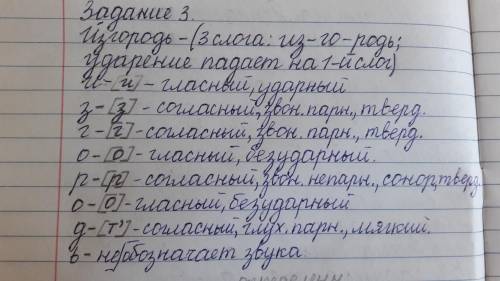 Задание 3.
Изгородь - (3 слога: из-го-родь;
ударение падает на 1-й слог)
и - [и] - гласный, ударный
з - [з] - согласный, звон. парн., тверд.
г - [г] - согласный, звон. парн., тверд.
о - [о] - гласный, безударный.
р - [р] - согласный, звон. непарн., сонор, тверд.
о - [о] - гласный, безударный
д - [т'] - согласный, глух. парн., мягкий.
ь - не обозначает звука